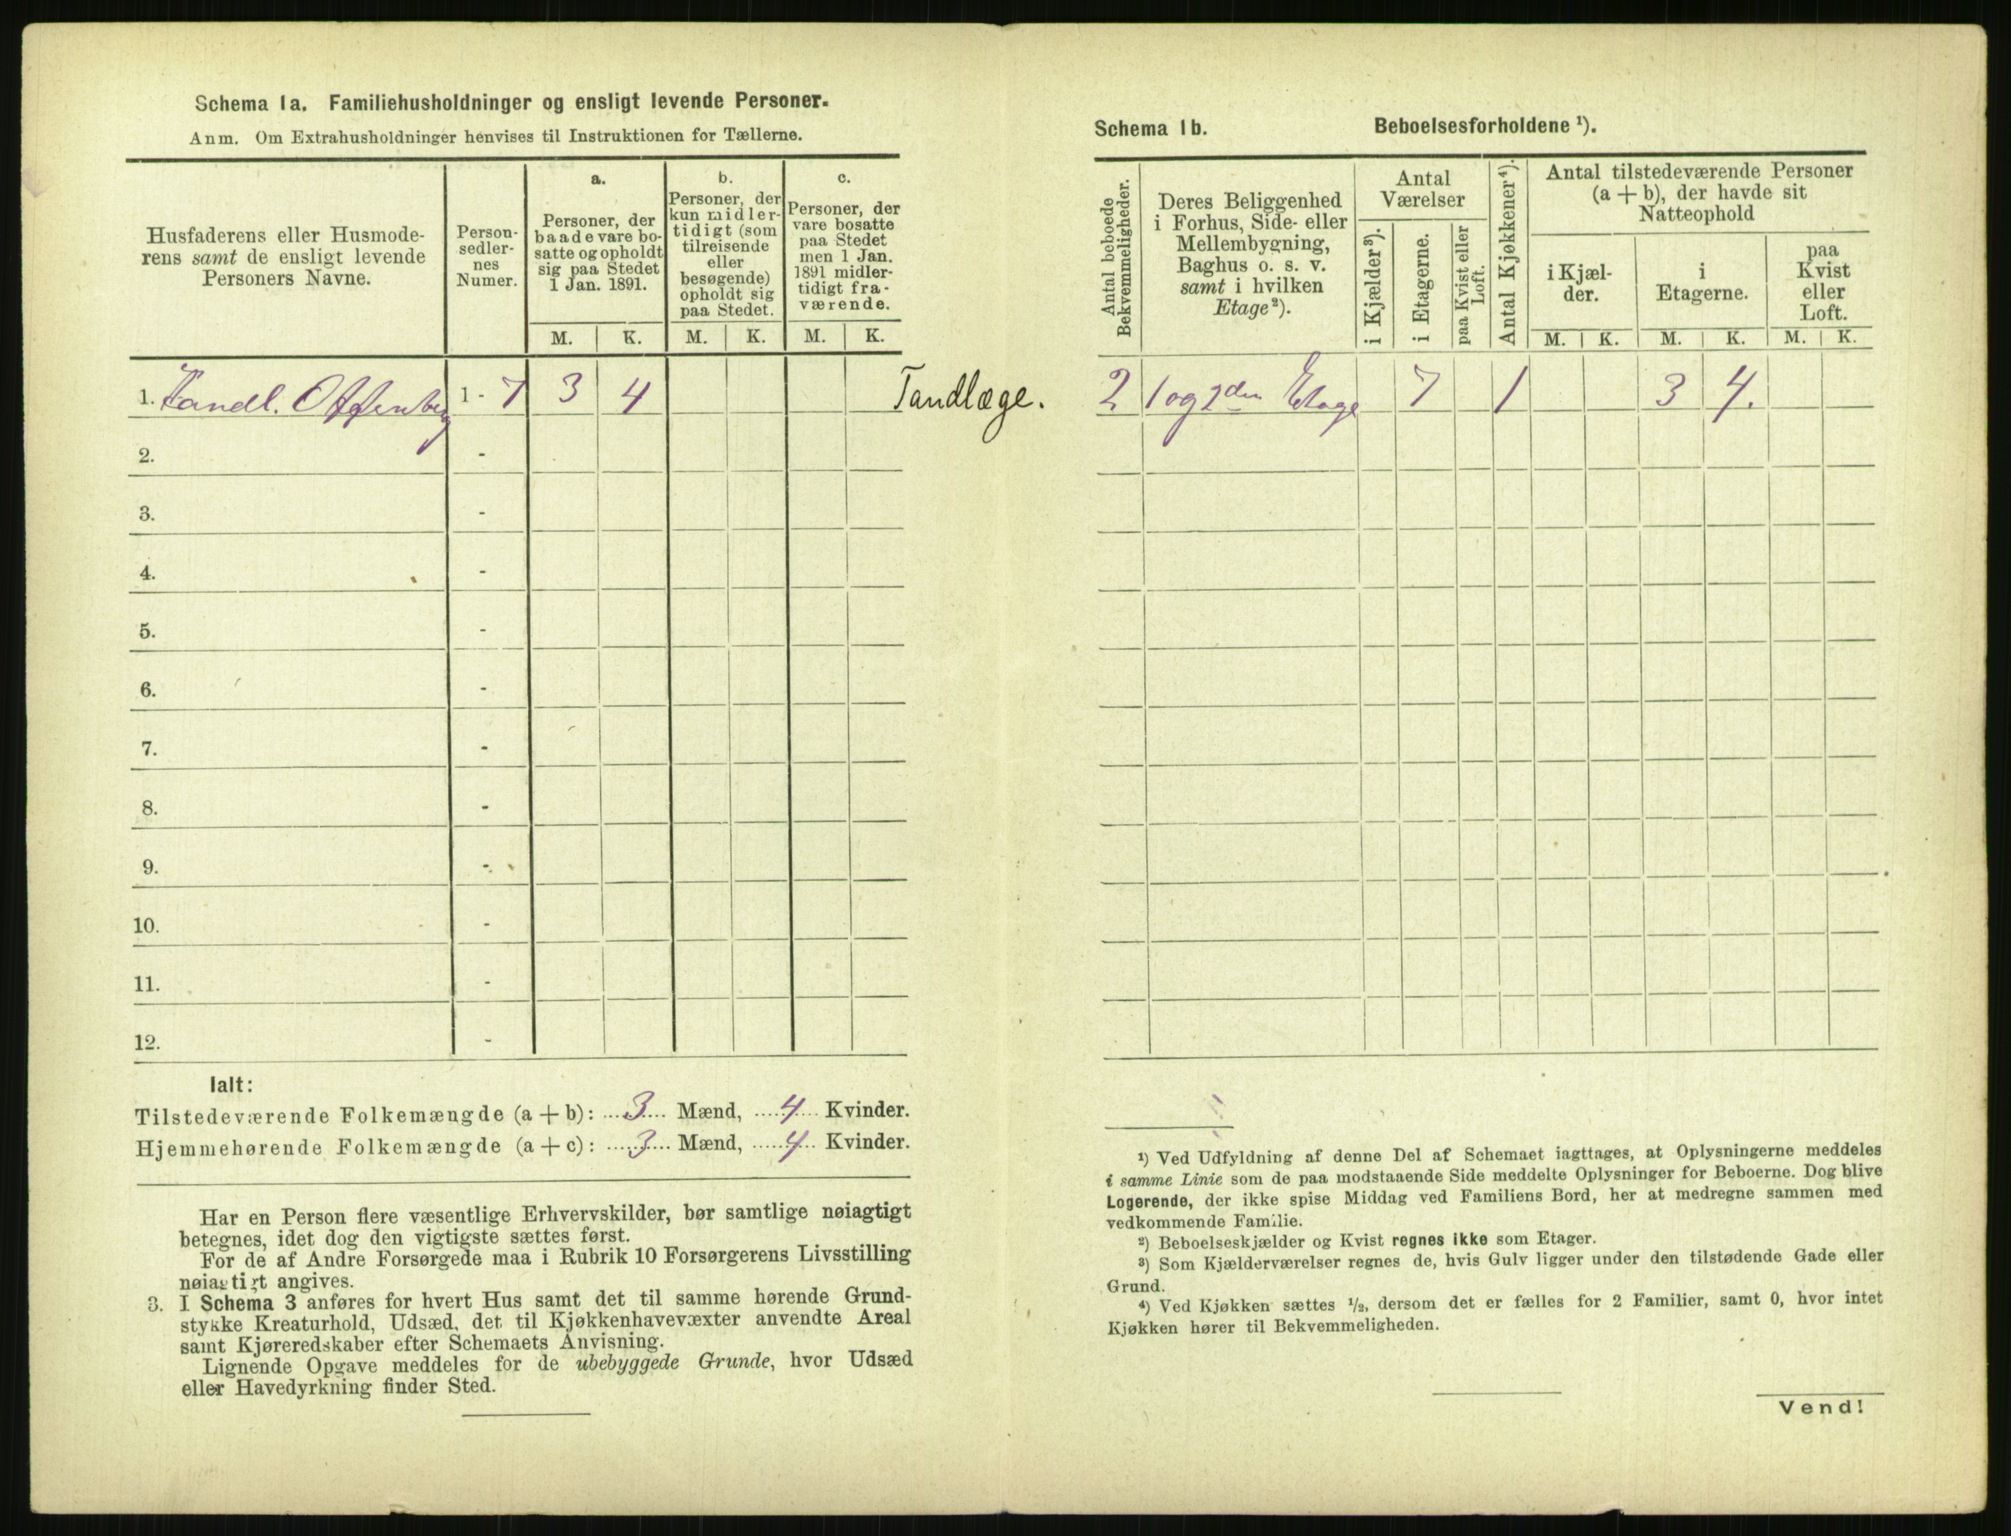 Schema 1a. Familiehusholdninger og ensligt levende Personer.
Anm. Om Extrahusholdninger henvises til Instruktionen for Tællerne.
Husfaderens eller Husmode-
rens samt de ensligt levende
Personers Navne.
Person-
sedler-
nes
Numer.
a.
Personer, der
baade vare bo-
satte og opholdt
sig paa Stedet
1 Jan. 1891.
b.
Personer, der
kun midler-
tidigt (som
tilreisende
eller
besøgende)
opholdt sig
paa Stedet.
c.
Personer, der
vare bosatte
paa Stedet
men 1 Jan.
1891 midler-
tidigt fra-
værende.
M. K. M. K. M. K.
1. Kandl. Offenberg 1 - 7 3 4 Tandlæge.
2. -
3. -
4. -
5. -
6. -
7. -
8. -
9. -
10. -
11. -
12. -
Ialt:
Tilstedeværende Folkemængde (a + b): 3 Mænd, 4 Kvinder.
Hjemmehørende Folkemængde (a + c): 3 Mænd, 4 Kvinder.
Har en Person flere væsentlige Erhvervskilder, bør samtlige nøiagtigt
betegnes, idet dog den vigtigste sættes først.
For de af Andre Forsørgede maa i Rubrik 10 Forsørgerens Livsstilling
nøiagtigt angives.
3. I Schema 3 anføres for hvert Hus samt det til samme hørende Grund-
stykke Kreaturhold, Udsæd, det til Kjøkkenhavevæxter anvendte Areal
samt Kjøreredskaber efter Schemaets Anvisning.
Lignende Opgave meddeles for de ubebyggede Grunde, hvor Udsæd
eller Havedyrkning finder Sted.
Schema 1b. Beboelsesforholdene ¹).
Antal beboede
Bekvemmeligheder.
Deres Beliggenhed
i Forhus, Side- eller
Mellembygning,
Baghus o. s. v.
samt i hvilken
Etage²).
Antal
Værelser
i Kjælder³).
i Etagerne.
paa Kvist eller
Loft.
Antal Kjøkkener⁴).
Antal tilstedeværende Personer
(a + b), der havde sit
Natteophold
i Kjæl-
der.
i
Etagerne.
paa
Kvist
eller
Loft.
M. K. M. K. M. K.
2 1 og 2den Etage 7 1 3 4.
¹) Ved Udfyldning af denne Del af Schemaet iagttages, at Oplysningerne meddeles
i samme Linie som de paa modstaaende Side meddelte Oplysninger for Beboerne. Dog blive
Logerende, der ikke spise Middag ved Familiens Bord, her at medregne sammen med
vedkommende Familie.
²) Beboelseskjælder og Kvist regnes ikke som Etager.
³) Som Kjælderværelser regnes de, hvis Gulv ligger under den tilstødende Gade eller
Grund.
⁴) Ved Kjøkken sættes ¹/₂, dersom det er fælles for 2 Familier, samt 0, hvor intet
Kjøkken hører til Bekvemmeligheden.
Vend!